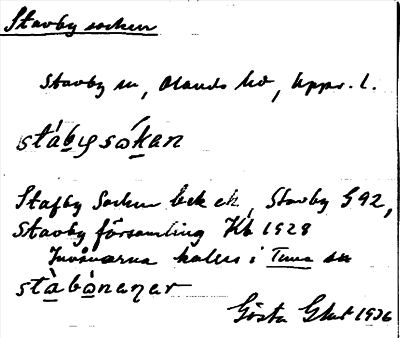 Stavby socken
Stavby sn, Olands hd, Upps. l.
stábysókan
Stafby Socken bek ek, Stavby G92,
Stavby församling Kb 1928
Invånarna kallas i Tuna sn
stàbònaṇar
Gösta 1936